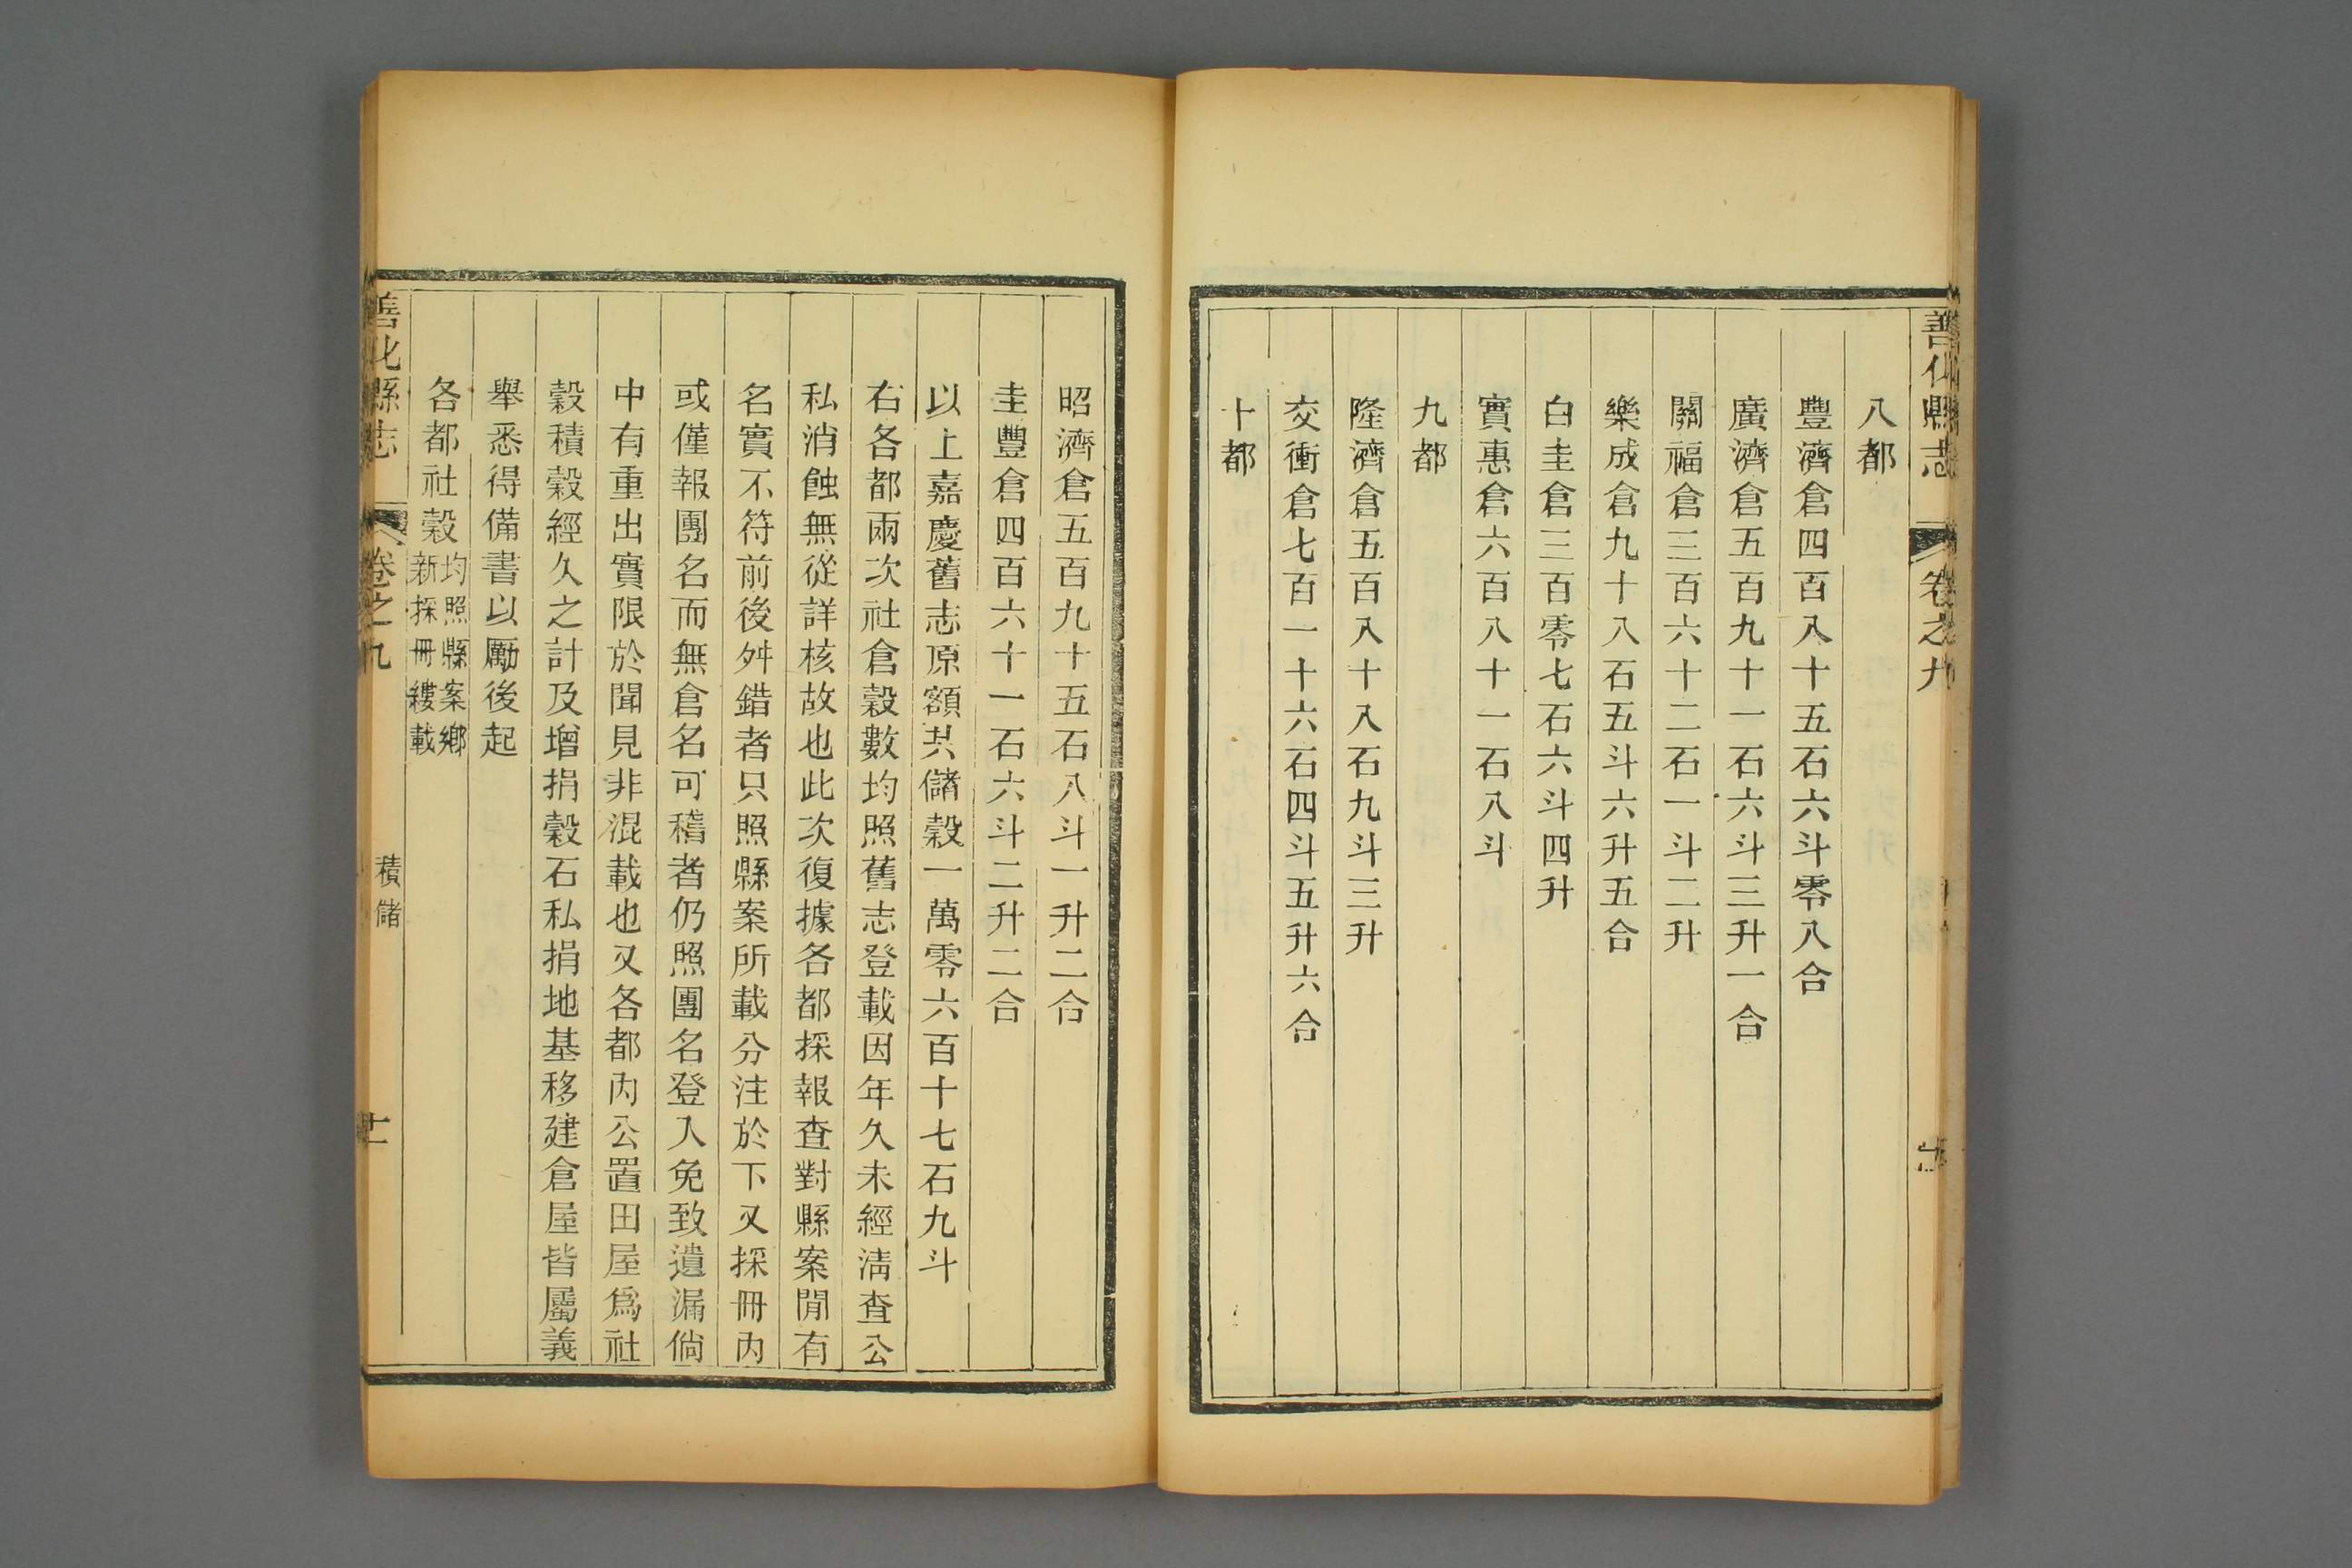 善化縣志
卷之九
八都
豐濟倉四百八十五石六斗零八合
廣濟倉五百九十一石六斗三升一合
關福倉三百六十二石一斗二升
樂成倉九十八石五斗六升五合
白圭倉三百零七石六斗四升
實惠倉六百八十一石八斗
九都
隆濟倉五百八十八石九斗三升
交衝倉七百一十六石四斗五升六合
十都
昭濟倉五百九十五石八斗一升二合
圭豐倉四百六十一石六斗二升二合
以上嘉慶舊志原額共儲穀一萬零六百十七石九斗
右各都兩次社倉穀數均照舊志登載因年久未經淸查公
私消蝕無從詳核故也此次復據各都採報查對縣案閒有
名實不符前後舛錯者只照縣案所載分注於下又採冊內
或僅報團名而無倉名可稽者仍照團名登入免致遺漏倘
中有重出實限於聞見非混載也又各都內公置田屋爲社
穀積穀經久之計及增捐穀石私捐地基移建倉屋皆屬義
舉悉得備書以勵後起
各都社穀均照縣案鄉
新採冊縷載
善化縣志
卷之九
積儲
十一